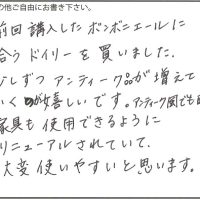 の他ご自由にお書き下さい。
前回購入したボンボニエールに
合うドイリーを買いました。
少しずつアンティーク品が増えて
いくのが嬉しいです。アンティーク風でも
家具も使用できるように
リニューアルされていて、
大変使いやすいと思います。